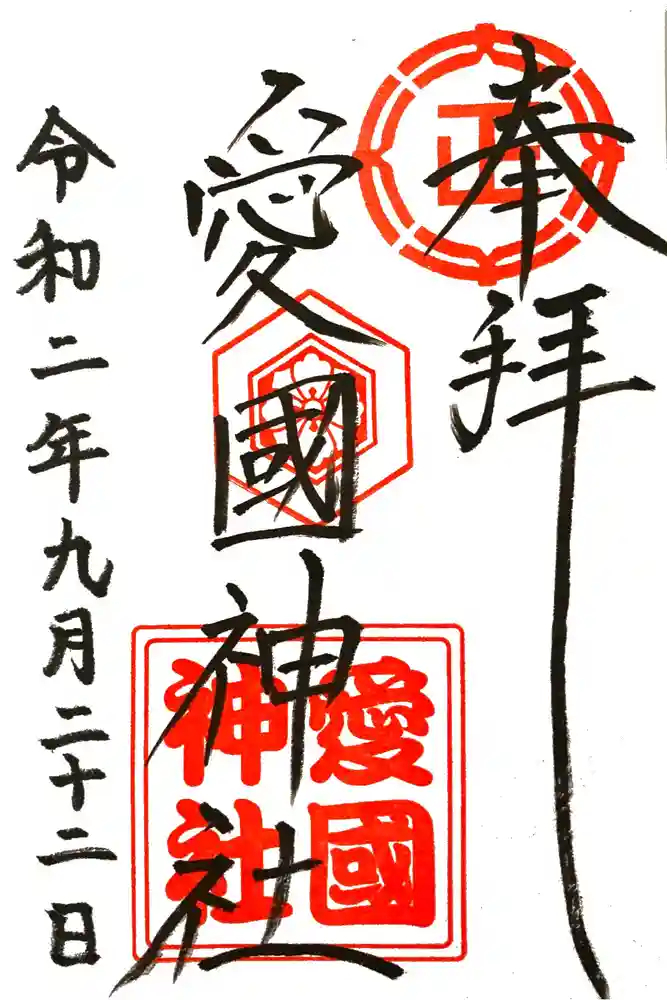 奉拝
正
愛國神社
愛國
神社
令和二年九月二十二日